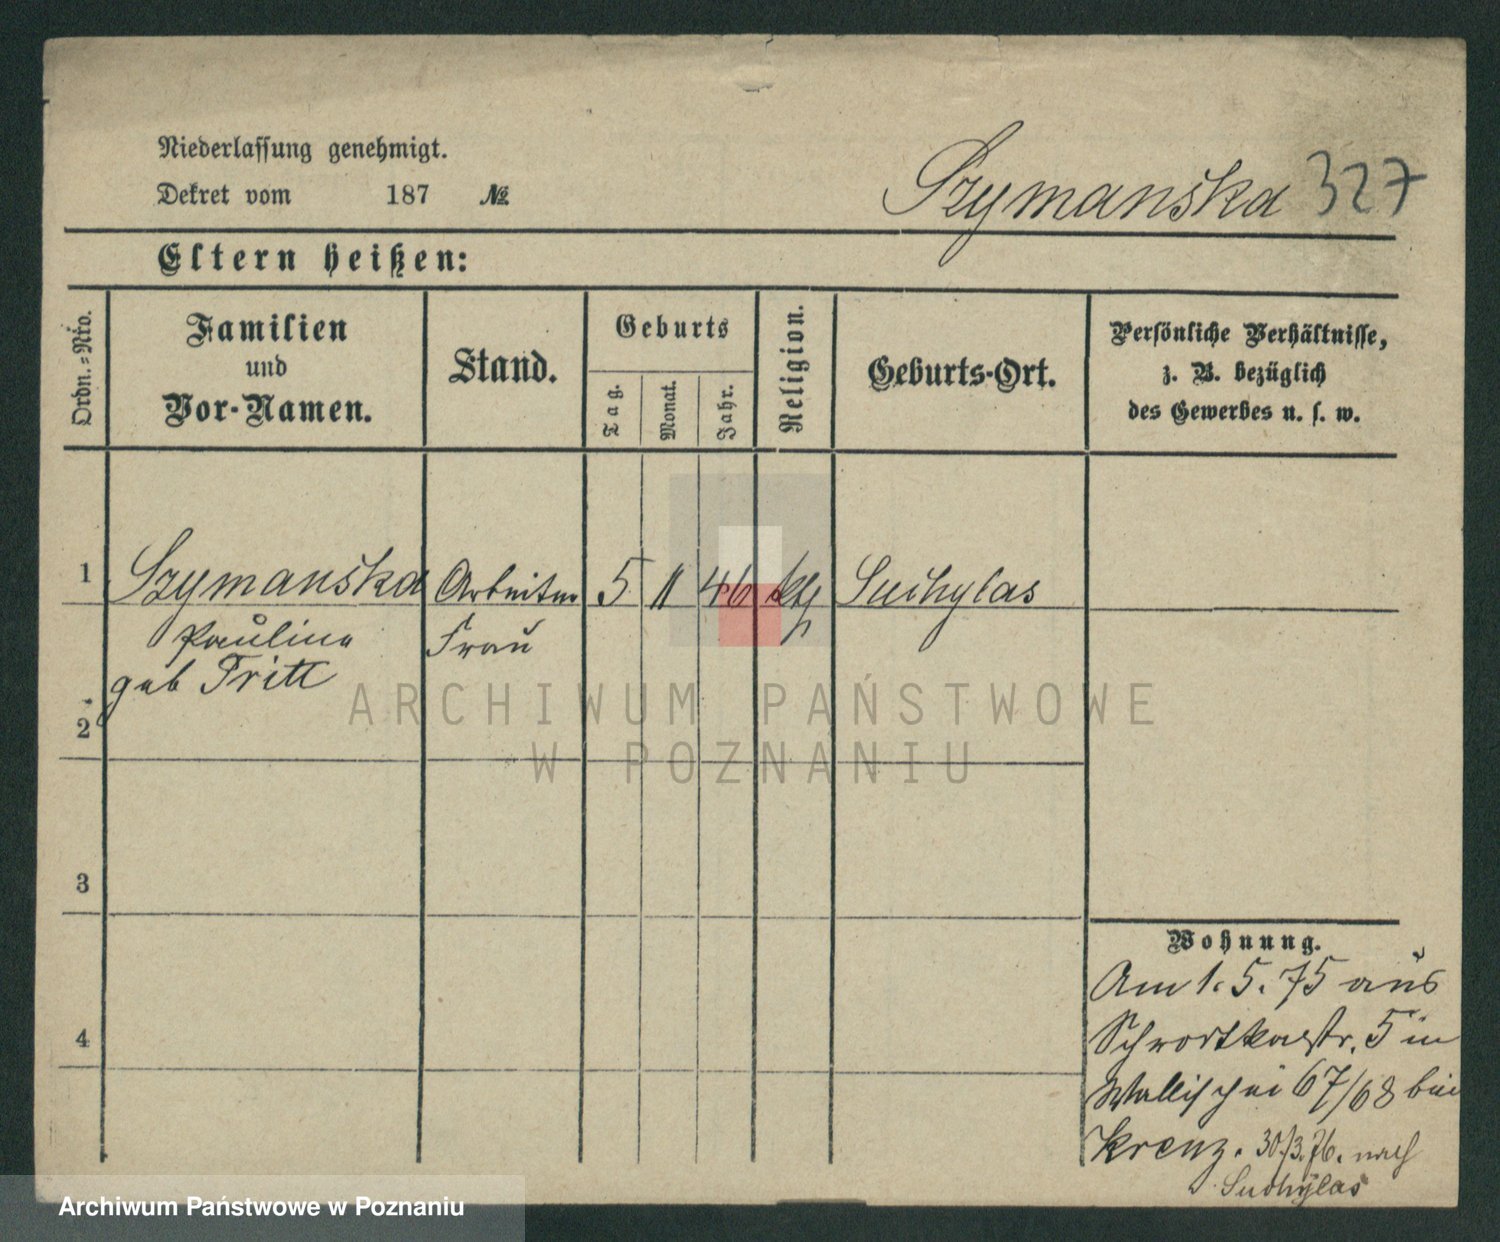 Niederlassung genehmigt.
Dekret vom 187 №
Szymanska 327
Eltern heißen:
Ordn.-Nro.
Familien
und
Vor-Namen.
Stand.
Geburts
Tag.
Monat.
Jahr.
Religion.
Geburts-Ort.
Persönliche Verhältnisse,
z. B. bezüglich
des Gewerbes u. s. w.
1 Szymanska Arbeiter 5 11 46 kth Suchylas
Pauline Frau
geb Tritt
2
3
4
Wohnung.
Am 1. 5. 75 aus
Schrodkastr. 5 in
Wallischei 67/68 bei
Krenz. 30./3. 76. nach
Suchylas
ARCHIWUM PAŃSTWOWE
W POZNANIU
Archiwum Państwowe w Poznaniu